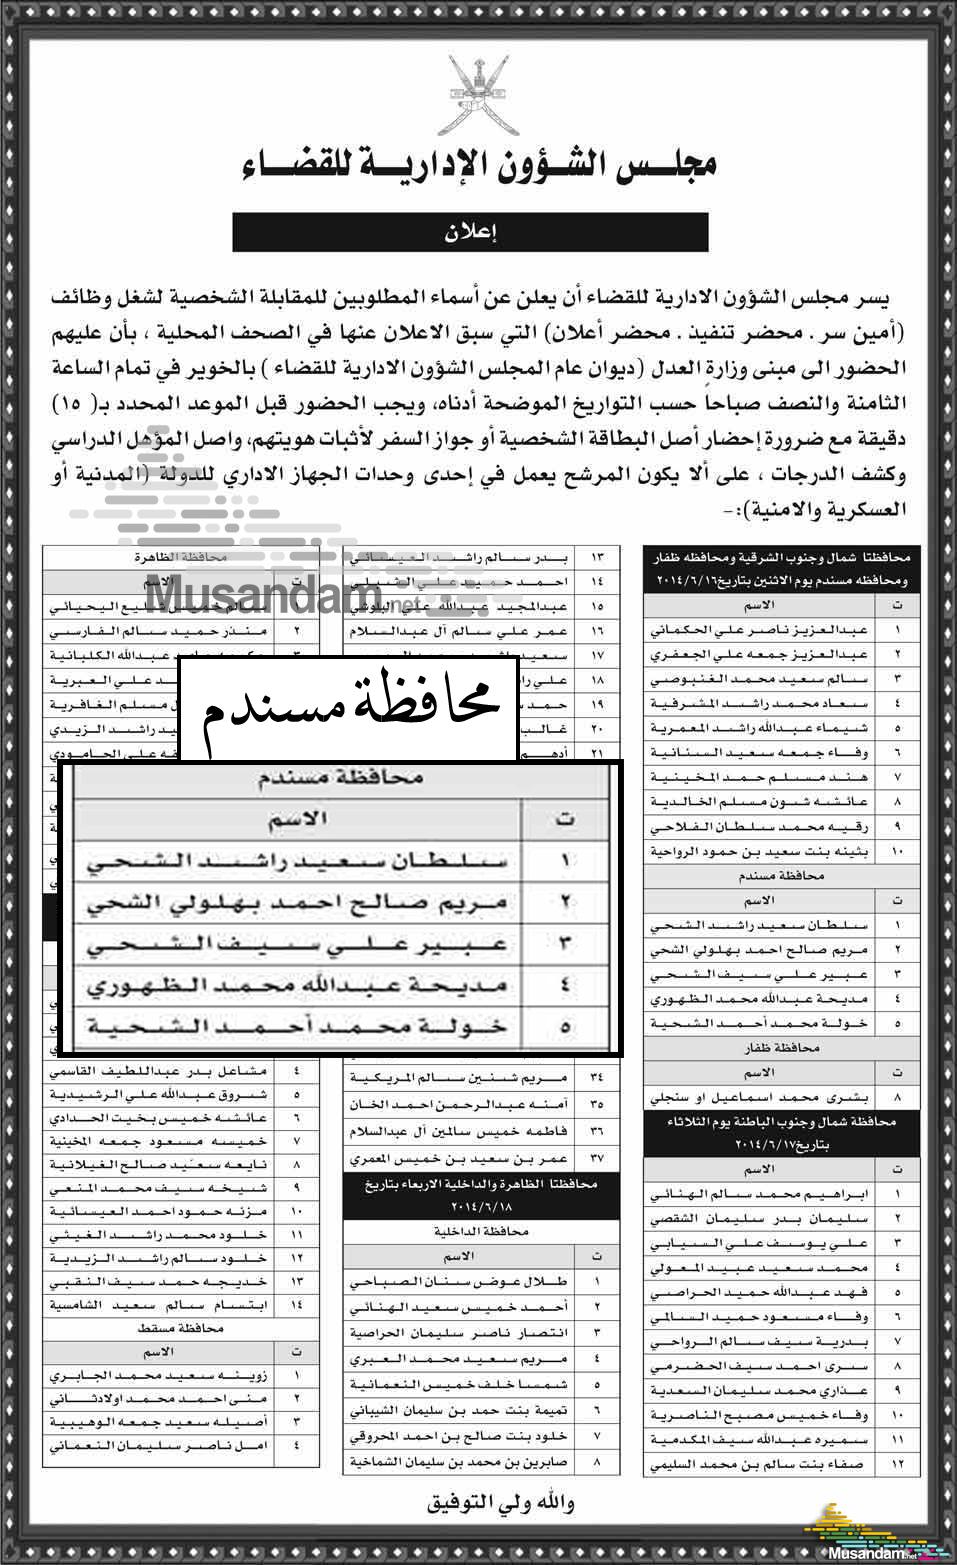 مجلس الشؤون الإدارية للقضاء
إعلان
يسر مجلس الشؤون الادارية للقضاء أن يعلن عن أسماء المطلوبين للمقابلة الشخصية لشغل وظائف
(أمين سر . محضر تنفيذ . محضر أعلان) التي سبق الاعلان عنها في الصحف المحلية ، بأن عليهم
الحضور الى مبنى وزارة العدل (ديوان عام المجلس الشؤون الادارية للقضاء ) بالخوير في تمام الساعة
الثامنة والنصف صباحاً حسب التواريخ الموضحة أدناه، ويجب الحضور قبل الموعد المحدد بـ( ١٥)
دقيقة مع ضرورة إحضار أصل البطاقة الشخصية أو جواز السفر لأثبات هويتهم، واصل المؤهل الدراسي
وكشف الدرجات ، على ألا يكون المرشح يعمل في إحدى وحدات الجهاز الاداري للدولة (المدنية أو
العسكرية والامنية):-
محافظتا شمال وجنوب الشرقية ومحافظه ظفار
ومحافظه مسندم يوم الاثنين بتاريخ ٢٠١٤/٦/١٦
ت الاسم
١ عبدالعزيز ناصر علي الحكماني
٢ عبدالعزيز جمعه علي الجعفري
٣ سالم سعيد محمد الغنبوصي
٤ سعاد محمد راشد المشرفية
٥ شيماء عبدالله راشد المعمرية
٦ وفاء جمعه سعيد السنانية
٧ هند مسلم حمد المخينية
٨ عائشه شون مسلم الخالدية
٩ رقيه محمد سلطان الفلاحي
١٠ بثينه بنت سعيد بن حمود الرواحية
محافظة مسندم
ت الاسم
١ سلطان سعيد راشد الشحي
٢ مريم صالح احمد بهلولي الشحي
٣ عبير علي سيف الشحي
٤ مديحة عبدالله محمد الظهوري
٥ خولة محمد أحمد الشحية
محافظة ظفار
ت الاسم
٨ بشرى محمد اسماعيل او سنجلي
محافظة شمال وجنوب الباطنة يوم الثلاثاء
بتاريخ ٢٠١٤/٦/١٧
ت الاسم
١ ابراهيم محمد سالم الهنائي
٢ سليمان بدر سليمان الشقصي
٣ علي يوسف علي السيابي
٤ محمد سعيد عبيد المعولي
٥ فهد عبدالله حميد الحراصي
٦ وفاء مسعود حميد السالمي
٧ بدرية سيف سالم الرواحي
٨ سرى احمد سيف الحضرمي
٩ عذاري محمد سليمان السعدية
١٠ وفاء خميس مصبح الناصرية
١١ سميره عبدالله سيف المكدمية
١٢ صفاء بنت سالم بن محمد السليمي
١٣ بدر سالم راشد العيسائي
١٤ احمد حميد علي الشبلي
١٥ عبدالمجيد عبدالله علي البلوشي
١٦ عمر علي سالم آل عبدالسلام
١٧ سعيد
١٨ علي
١٩ حمد
٢٠
٢١ أدهم
٣٤ مريم شنين سالم المريكية
٣٥ آمنه عبدالرحمن احمد الخان
٣٦ فاطمه خميس سالمين آل عبدالسلام
٣٧ عمر بن سعيد بن خميس المعمري
محافظتا الظاهرة والداخلية الاربعاء بتاريخ
٢٠١٤/٦/١٨
محافظة الداخلية
ت الاسم
١ طلال عوض سنان الصباحي
٢ أحمد خميس سعيد الهنائي
٣ انتصار ناصر سليمان الحراصية
٤ مريم سعيد محمد العبري
٥ شمسا خلف خميس النعمانية
٦ تميمة بنت حمد بن سليمان الشيباني
٧ خلود بنت صالح بن احمد المحروقي
٨ صابرين بن محمد بن سليمان الشماخية
محافظة الظاهرة
ت الاسم
١ سالم خميس شليع اليحيائي
٢ منذر حميد سالم الفارسي
٣ عبدالله الكلبانية
علي العبرية
مسلم الغافرية
راشد الزيدي
علي الحامودي
٤ مشاعل بدر عبداللطيف القاسمي
٥ شروق عبدالله علي الرشيدية
٦ عائشه خميس بخيت الحدادي
٧ خميسه مسعود جمعه المخينية
٨ نايعه سعيد صالح الغيلانية
٩ شيخه سيف محمد المنعي
١٠ مزنه حمود احمد العيسائية
١١ خلود محمد راشد الغيثي
١٢ خلود سالم راشد الزيدية
١٣ خديجه حمد سيف النقبي
١٤ ابتسام سالم سعيد الشامسية
محافظة مسقط
ت الاسم
١ زوينه سعيد محمد الجابري
٢ منى احمد محمد اولادثاني
٣ أصيله سعيد جمعه الوهيبية
٤ امل ناصر سليمان النعماني
محافظة مسندم
محافظة مسندم
ت الاسم
١ سلطان سعيد راشد الشحي
٢ مريم صالح احمد بهلولي الشحي
٣ عبير علي سيف الشحي
٤ مديحة عبدالله محمد الظهوري
٥ خولة محمد أحمد الشحية
والله ولي التوفيق
Musandam.net
Musandam.net